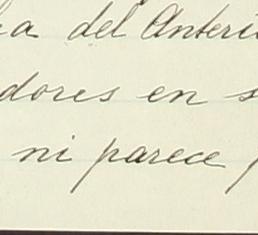 del Anteri
dores en s
ni parece